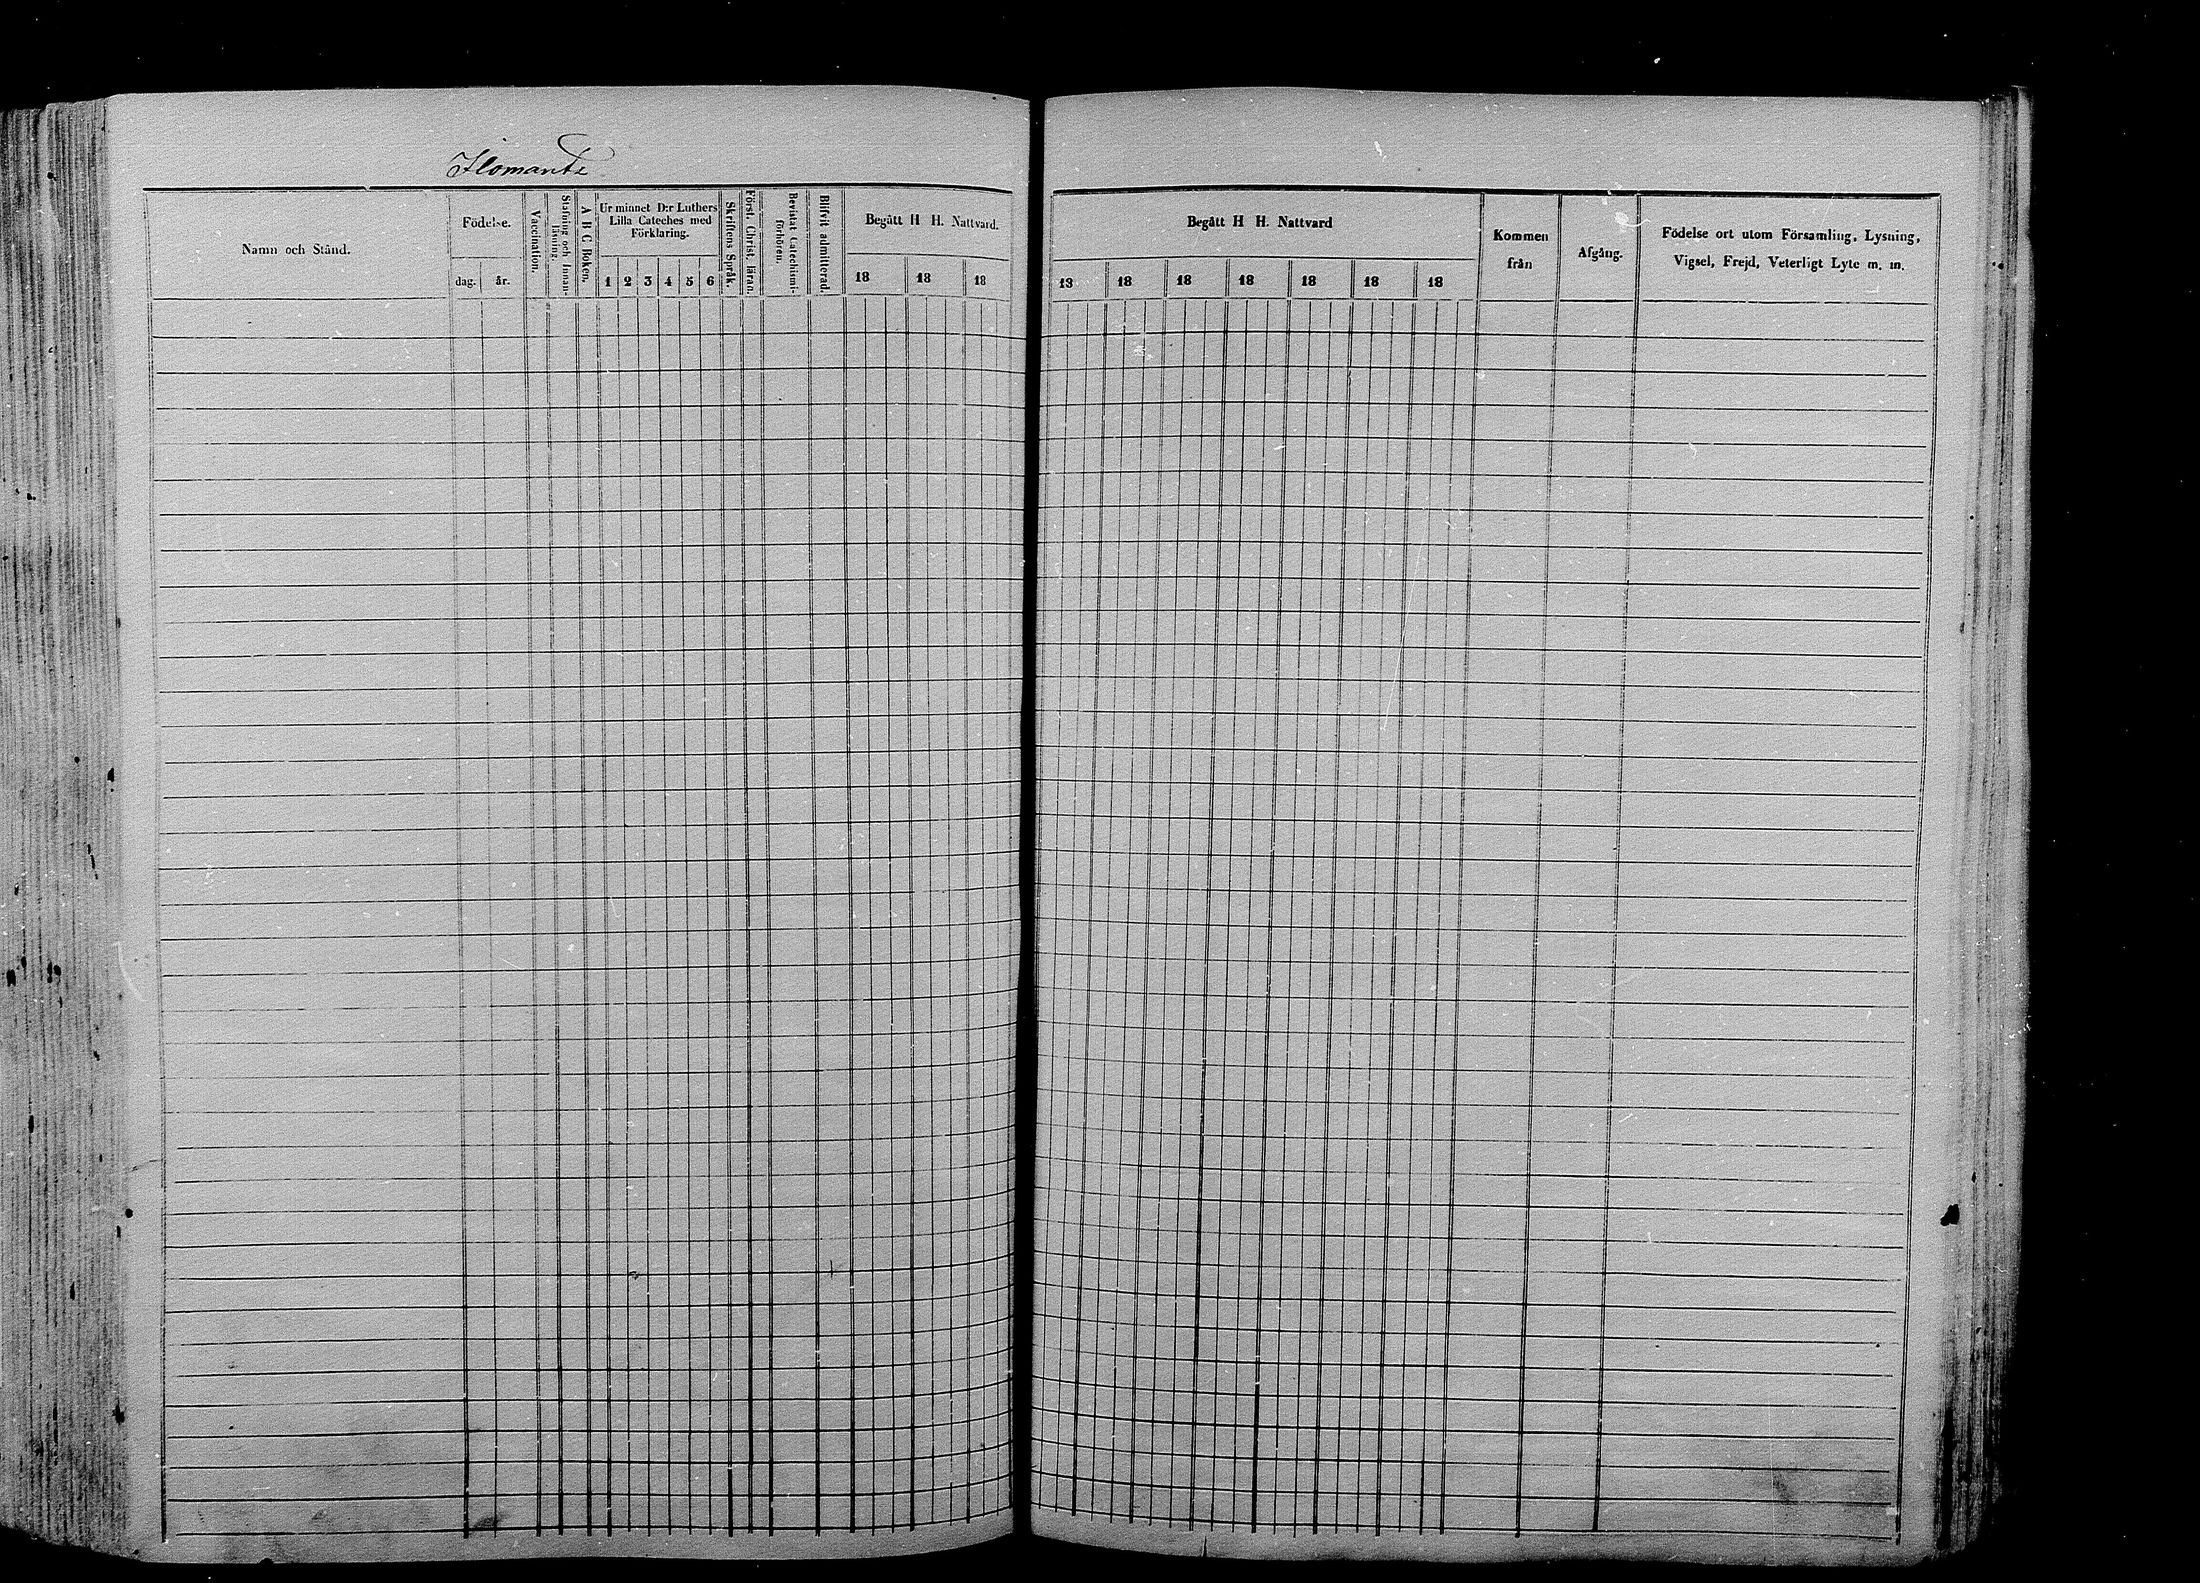 Ilomants
Namn och Stånd.
Födelse.
dag.
år.
Vaccination.
Stafning och Innan-
läsning.
A B C Boken.
Ur minnet D:r Luthers
Lilla Cateches med
Förklaring.
1 2 3 4 5 6
Skriftens Språk.
Först. Christ. läran.
Bevistat Catechismi-
förhören.
Blifvit admitterad.
Begått H H. Nattvard.
18 18 18
Begått H H. Nattvard
18 18 18 18 18 18 18
Kommen
från
Afgång.
Födelse ort utom Församling, Lysning,
Vigsel, Frejd, Veterligt Lyte m. m.